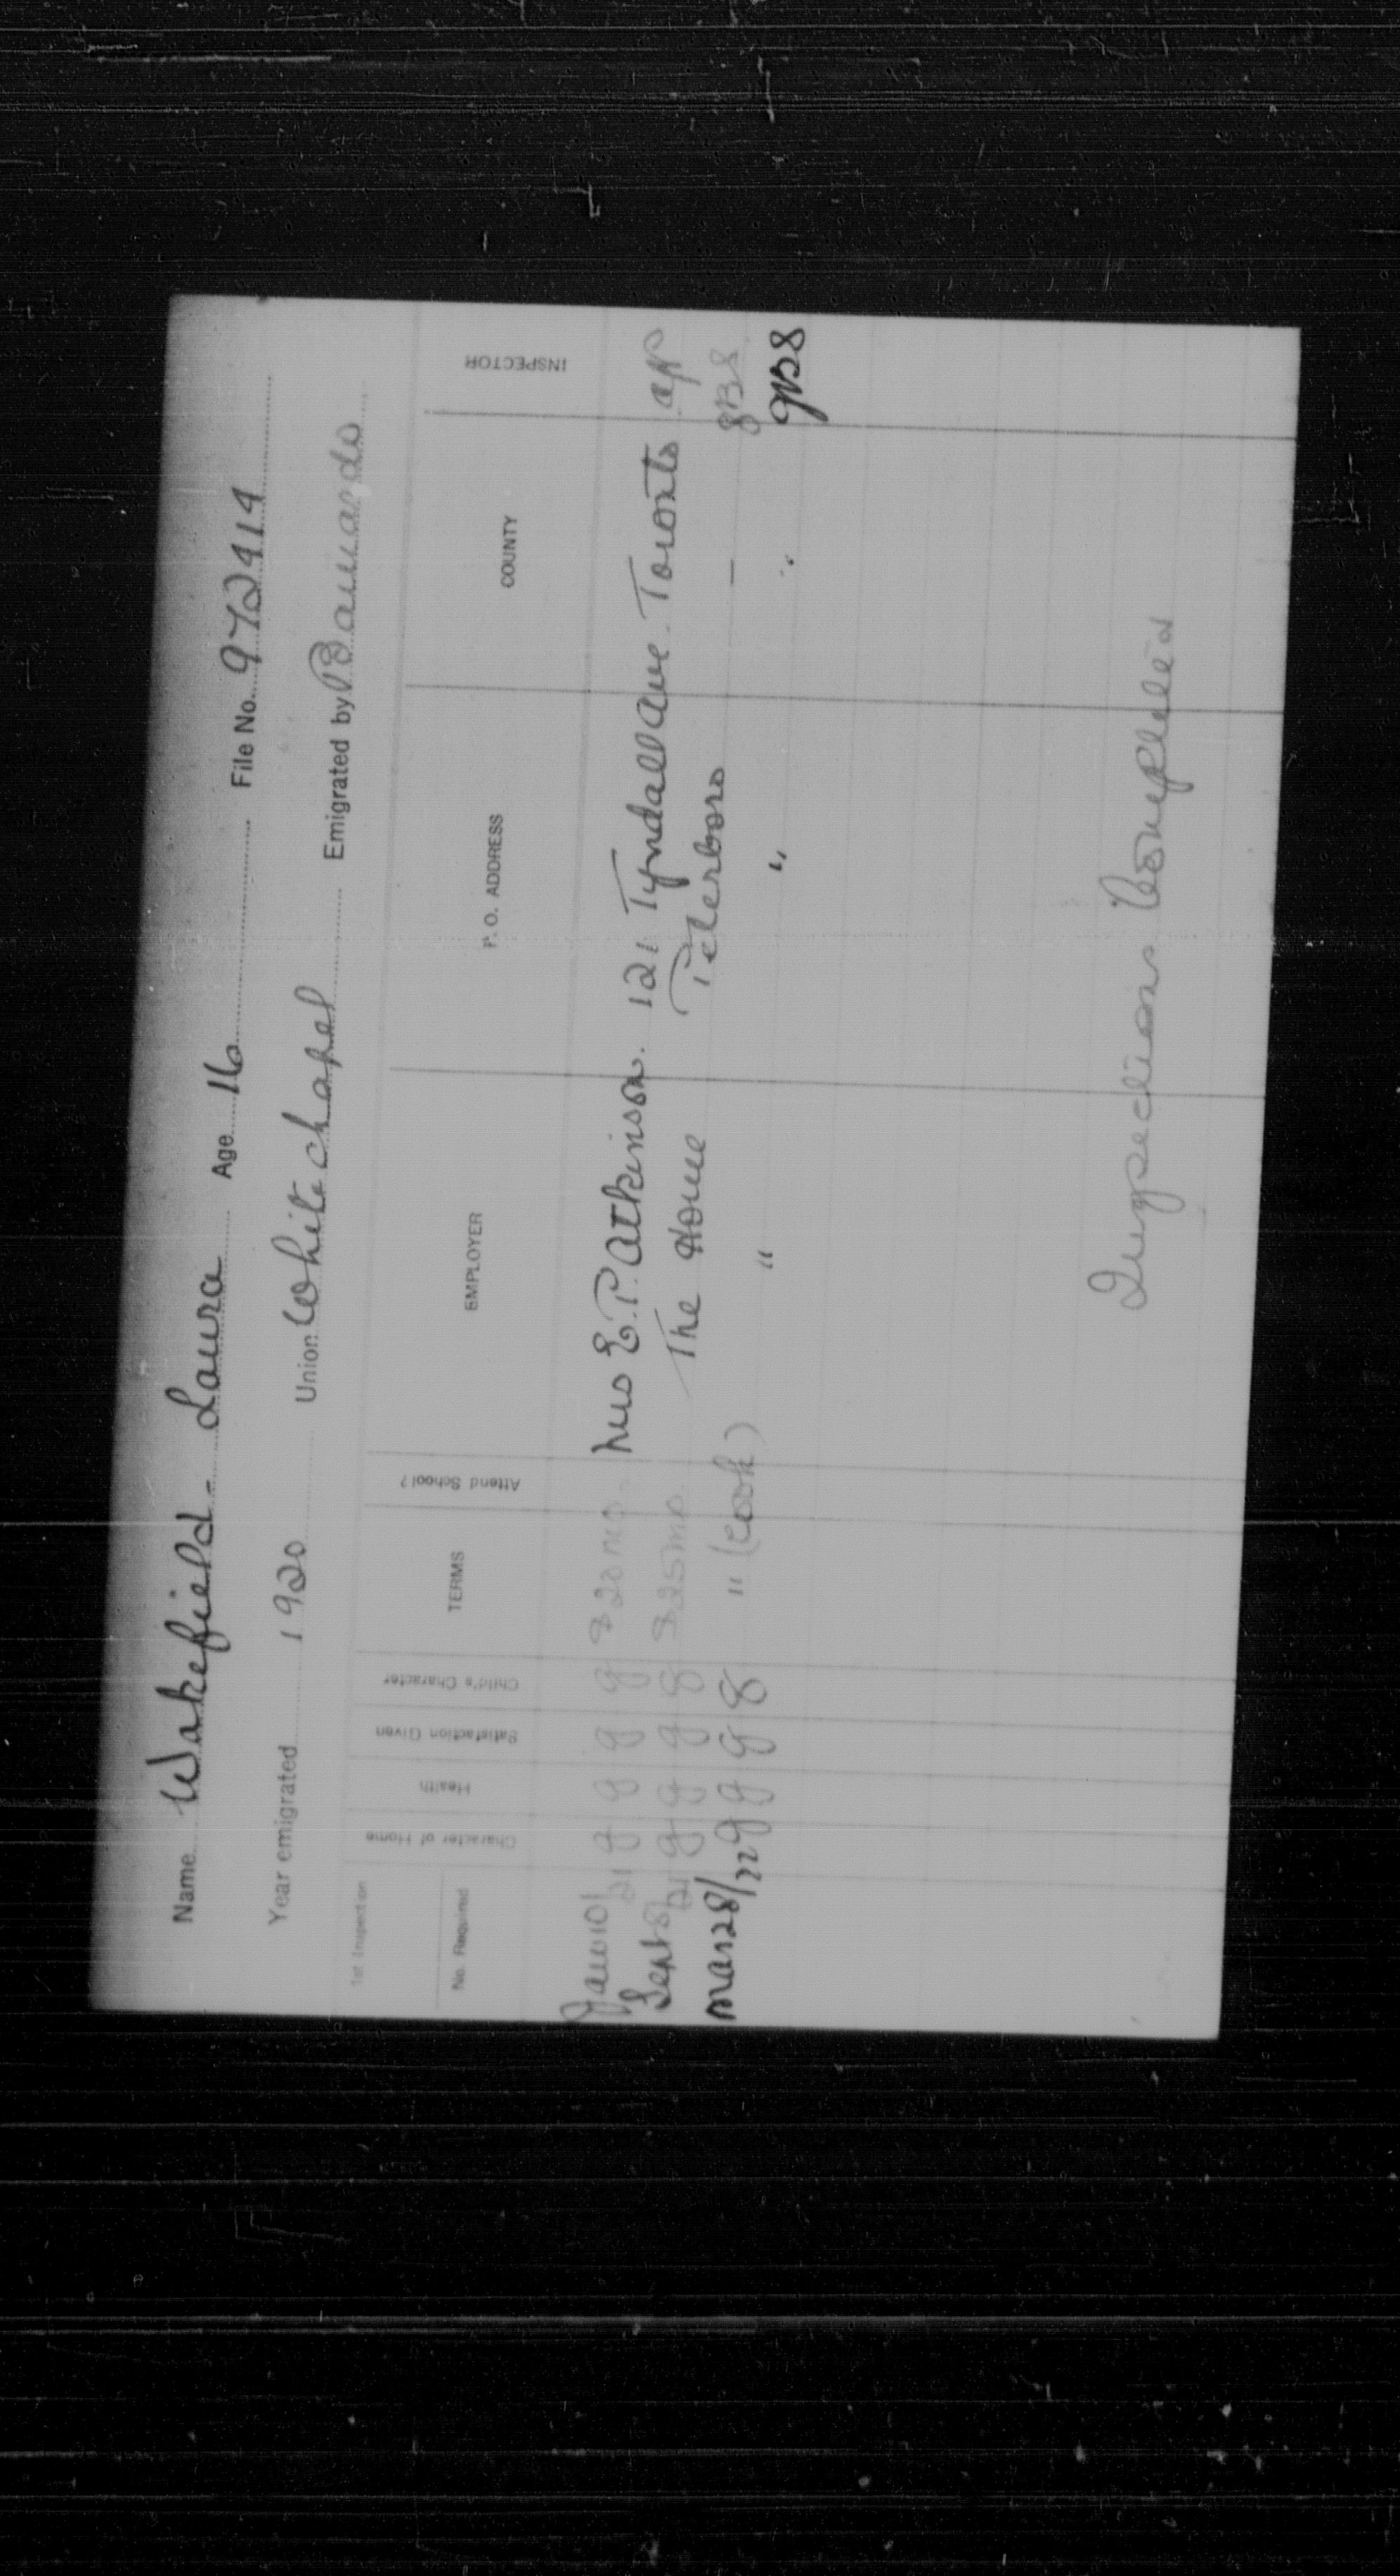 Name Wakefield - Laura Age 16 File No. 972414
Year emigrated 1920 Union Whitechapel Emigrated by Barnardo
1st Inspection
No. Required Character of Home Health Satisfaction Given Child's Character TERMS Attend School? EMPLOYER P. O. ADDRESS COUNTY INSPECTOR
Jan 10/21 g g g g $20 mo. Mrs E. P. Atkinson. 121 Tyndall Ave. Toronto ap
Sept 8/21 g g g g $25 mo The Home Peterboro — GBS
Mar 28/22 g g g g " (cook) " " " GBS
Inspections Completed